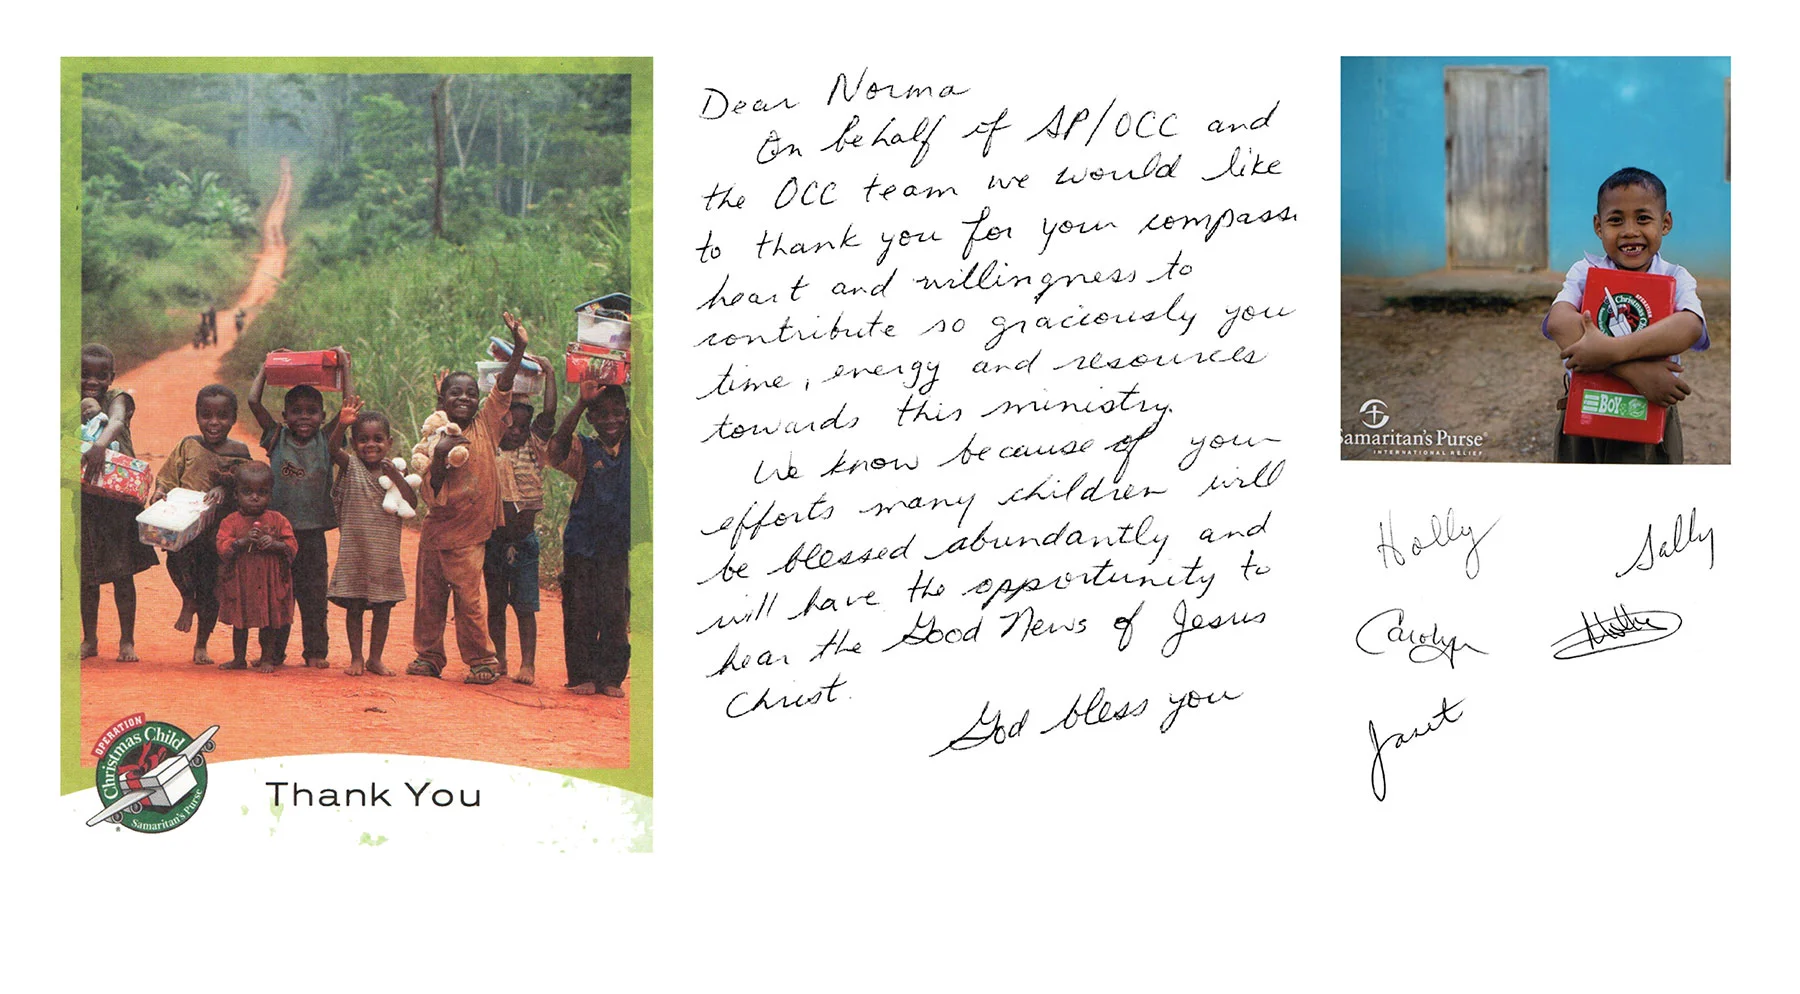 OPERATION
Christmas Child
Samaritan's Purse
Thank You
Dear Norma
On behalf of SP/OCC and
the OCC team we would like
to thank you for your compassi
heart and willingness to
contribute so graciously you
time, energy and resources
towards this ministry.
We know because of your
efforts many children will
be blessed abundantly and
will have the opportunity to
hear the Good News of Jesus
Christ.
God bless you
Christmas Child
BOY
Samaritan's Purse
INTERNATIONAL RELIEF
Holly
Sally
Carolyn
Janet